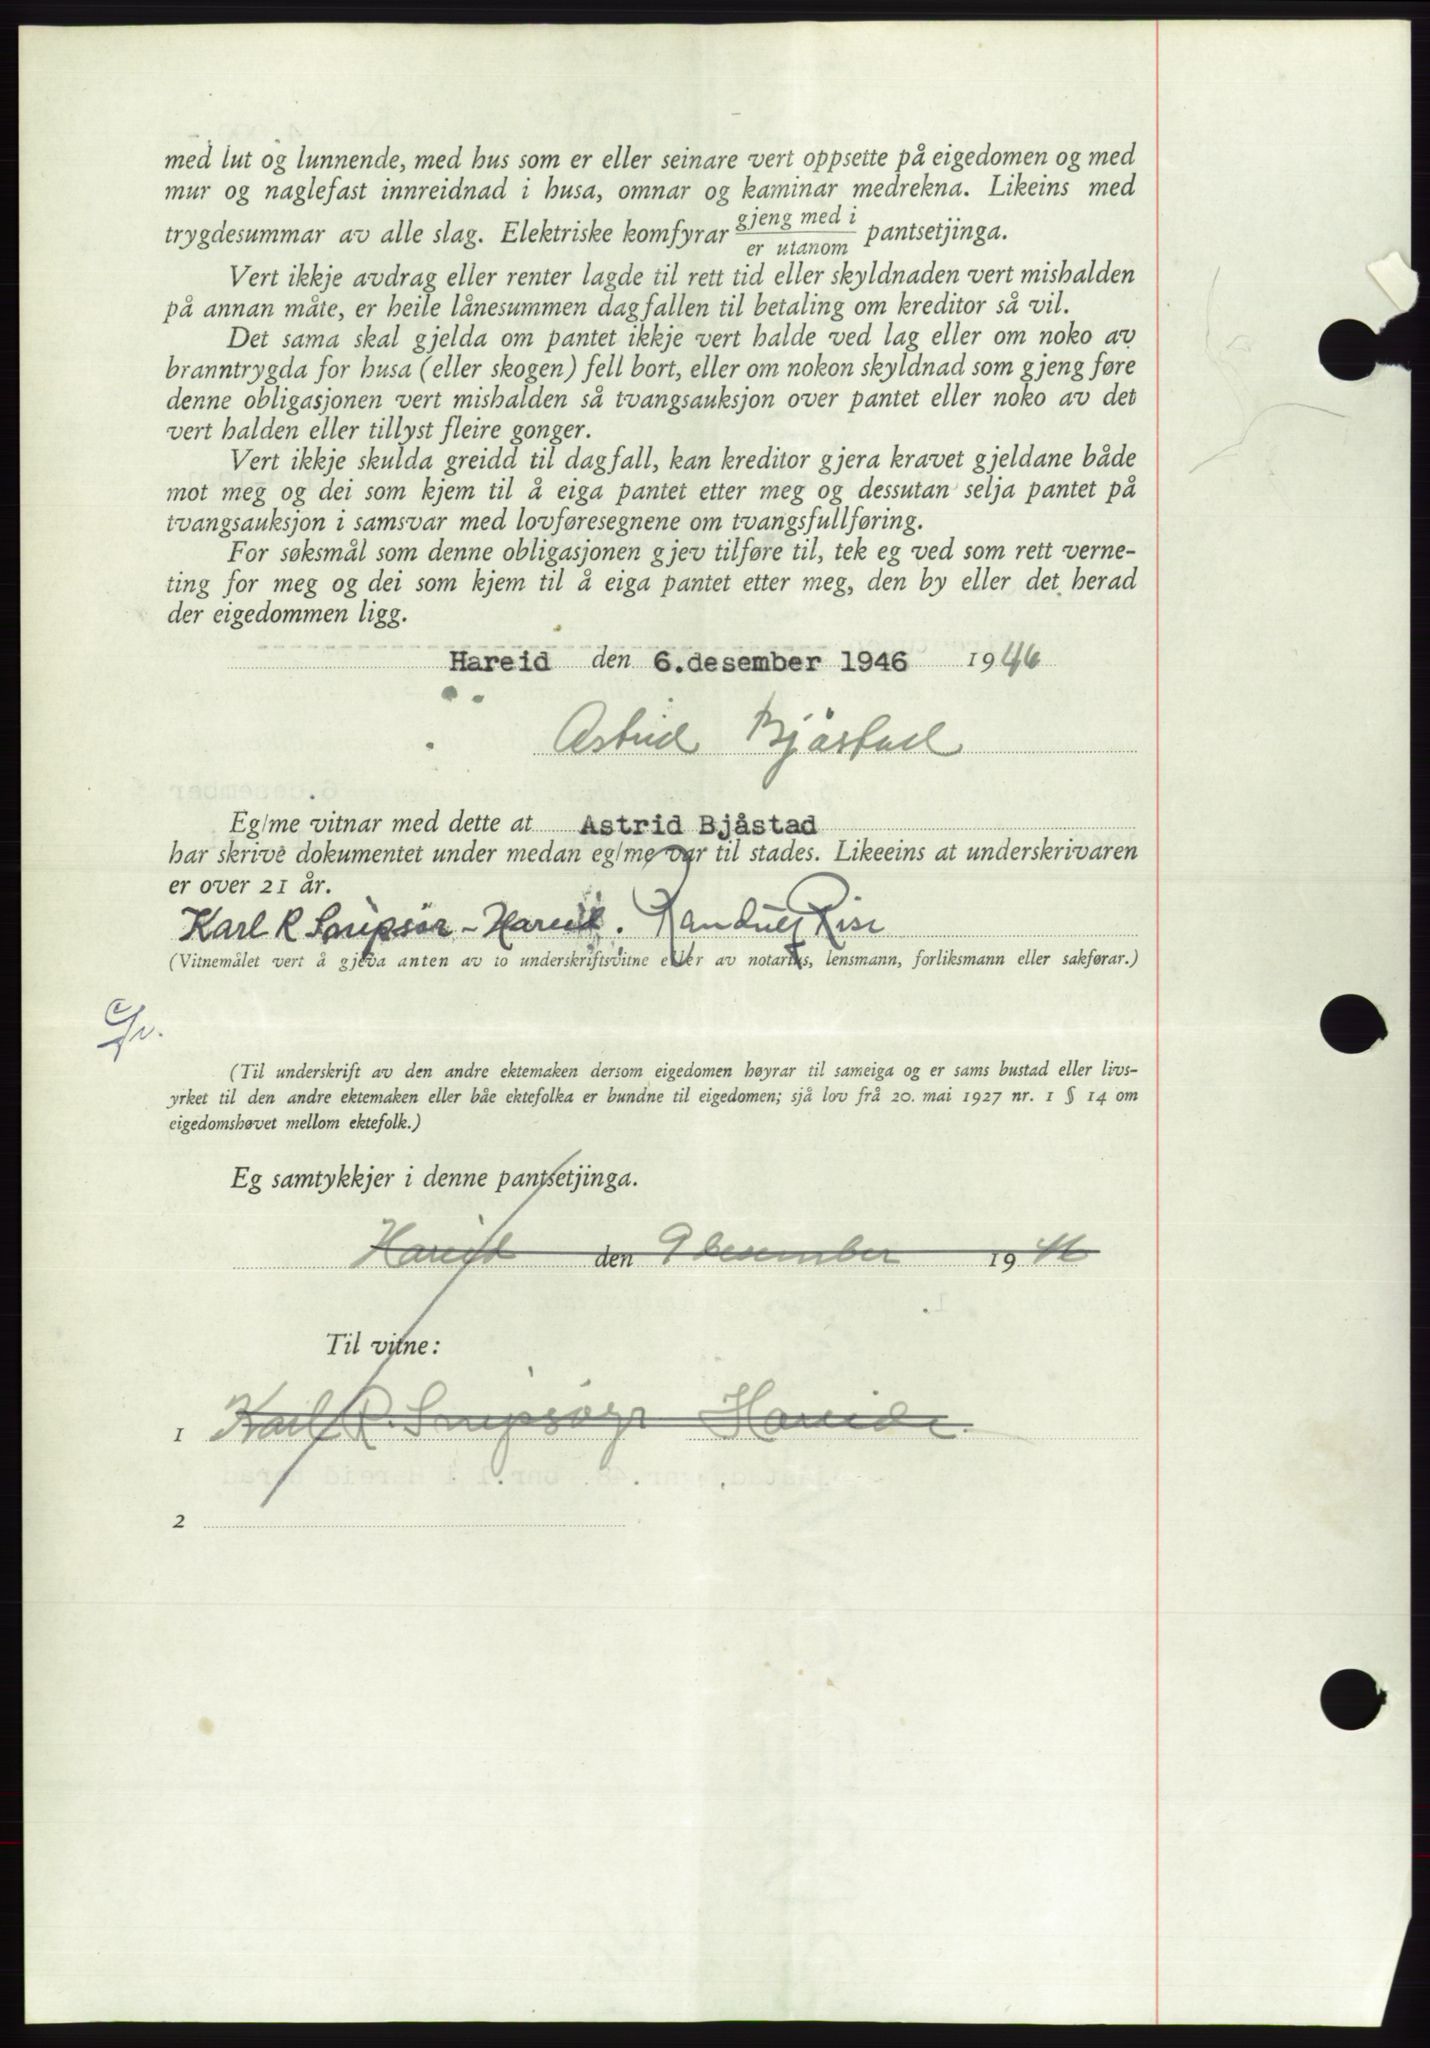 med lut og lunnende, med hus som er eller seinare vert oppsette på eigedomen og med
mur og naglefast innreidnad i husa, omnar og kaminar medrekna. Likeins med
trygdesummar av alle slag. Elektriske komfyrar gjeng med i / er utanom pantsetjinga.
Vert ikkje avdrag eller renter lagde til rett tid eller skyldnaden vert mishalden
på annan måte, er heile lånesummen dagfallen til betaling om kreditor så vil.
Det sama skal gjelda om pantet ikkje vert halde ved lag eller om noko av
branntrygda for husa (eller skogen) fell bort, eller om nokon skyldnad som gjeng føre
denne obligasjonen vert mishalden så tvangsauksjon over pantet eller noko av det
vert halden eller tillyst fleire gonger.
Vert ikkje skulda greidd til dagfall, kan kreditor gjera kravet gjeldane både
mot meg og dei som kjem til å eiga pantet etter meg og dessutan selja pantet på
tvangsauksjon i samsvar med lovføresegnene om tvangsfullføring.
For søksmål som denne obligasjonen gjev tilføre til, tek eg ved som rett verne-
ting for meg og dei som kjem til å eiga pantet etter meg, den by eller det herad
der eigedommen ligg.
Hareid den 6.desember 1946 1946
Astrid Bjåstad
Eg/me vitnar med dette at Astrid Bjåstad
har skrive dokumentet under medan eg/me var til stades. Likeeins at underskrivaren
er over 21 år.
Karl R Snipsør - Hareid. Randveg Rise
(Vitnemålet vert å gjeva anten av to underskriftsvitne eller av notarius, lensmann, forliksmann eller sakførar.)
(Til underskrift av den andre ektemaken dersom eigedomen høyrar til sameiga og er sams bustad eller livs-
yrket til den andre ektemaken eller båe ektefolka er bundne til eigedomen; sjå lov frå 20. mai 1927 nr. 1 § 14 om
eigedomshøvet mellom ektefolk.)
Eg samtykkjer i denne pantsetjinga.
Hareid den 9 desember 1946
Til vitne:
1 Karl R. Snipsøyr Hareide.
2